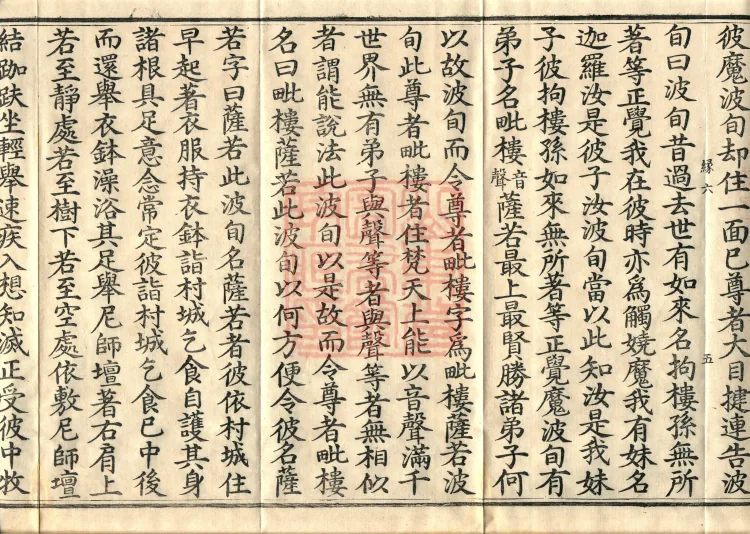 彼魔波旬却住一面已尊者大目揵連告波
緣六
五
旬曰波旬昔過去世有如來名拘樓孫無所
著等正覺我在彼時亦為觸嬈魔我有妹名
迦羅汝是彼子汝波旬當以此知汝是我妹
子彼拘樓孫如來無所著等正覺魔波旬有
弟子名毗樓音聲薩若最上最賢勝諸弟子何
以故波旬而令尊者毗樓字為毗樓薩若波
旬此尊者毗樓者住梵天上能以音聲滿千
世界無有弟子與聲等者與聲等者無相似
者謂能說法此波旬以是故而令尊者毗樓
名曰毗樓薩若此波旬以何方便令彼名薩
若字曰薩若此波旬名薩若者彼依村城住
早起著衣服持衣鉢詣村城乞食自護其身
諸根具足意念常定彼詣村城乞食已中後
而還舉衣鉢澡浴其足舉尼師壇著右肩上
若至靜處若至樹下若至空處依敷尼師壇
結跏趺坐輕舉速疾入想知滅正受彼中牧